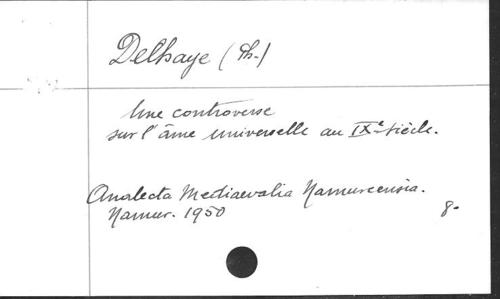 Delhaye (Ph.)
Une controverse
sur l'âme universelle au IXe siècle.
Analecta Mediaevalia Namurcensia.
Namur. 1950
8.